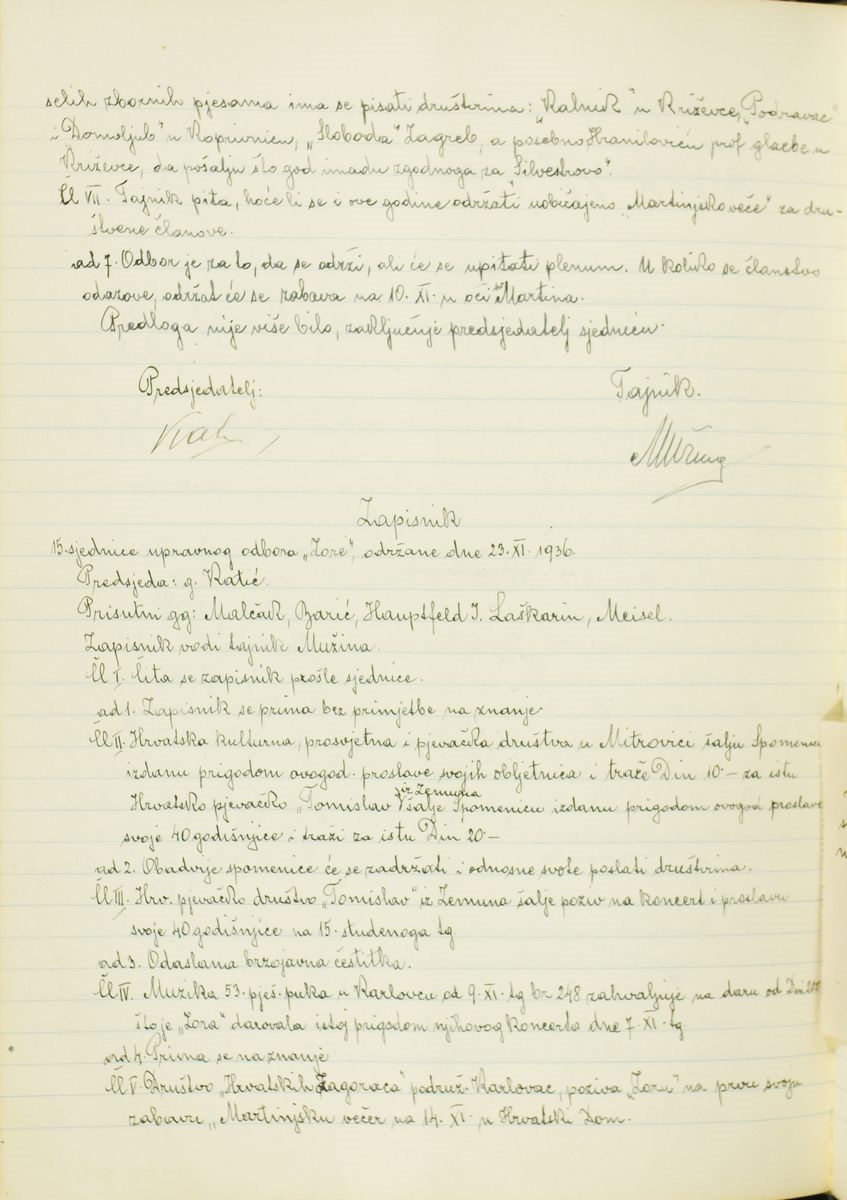 selih zbornih pjesama ima se pisati društvima: "Kalnik" u Križevce, "Podravac"
i Domoljub" u Koprivnicu, "Sloboda" Zagreb, a posebno Hraniloviću prof. glazbe u
Križevce, da pošalju što god imadu zgodnoga za "Silvestrovo".
Čl VII. Tajnik pita, hoće li se i ove godine održati uobičajeno "Martinjsko veče" za dru-
štvene članove.
ad 7. Odbor je za to, da se održi, ali će se upitati plenum. U koliko se članstvo
odazove, održat će se zabava na 10. XI. u oči sv Martina.
Predloga nije više bilo, zaključuje predsjedatelj sjednicu.
Predsjedatelj: Tajnik.
Zapisnik
15. sjednice upravnog odbora "Zore", održane dne 23. XI. 1936.
Predsjeda: g. Katić.
Prisutni gg: Malčak, Barić, Hauptfeld I. Laškarin, Meisel.
Zapisnik vodi tajnik Mužina.
Čl I. Čita se zapisnik prošle sjednice.
ad 1. Zapisnik se prima bez primjetbe na znanje.
Čl II. Hrvatska kulturna, prosvjetna i pjevačka društva u Mitrovici šalju Spomenicu
izdanu prigodom ovogod. proslave svojih obljetnica i traže Din 10.— za istu
Hrvatsko pjevačko "Tomislav iz Zemuna šalje Spomenicu izdanu prigodom ovogod proslave
svoje 40 godišnjice i traži za istu Din 20.—
ad 2. Obadvije spomenice će se zadržati i odnosne svote poslati društvima.
Čl III. Hrv. pjevačko društvo "Tomislav" iz Zemuna šalje poziv na koncert i proslavu
svoje 40 godišnjice na 15. studenoga tg.
ad 3. Odaslana brzojavna čestitka.
Čl IV. Muzika 53. pješ. puka u Karlovcu od 9. XI. tg br 248 zahvaljuje na daru od Din 200
što je "Zora" darovala istoj prigodom njihovog koncerta dne 7. XI. tg.
ad 4. Prima se na znanje
Čl V. Društvo "Hrvatskih Zagoraca" podruž. Karlovac, poziva "Zoru" na prvu svoju
zabavu "Martinjsku večer na 14. XI. u Hrvatski Dom.